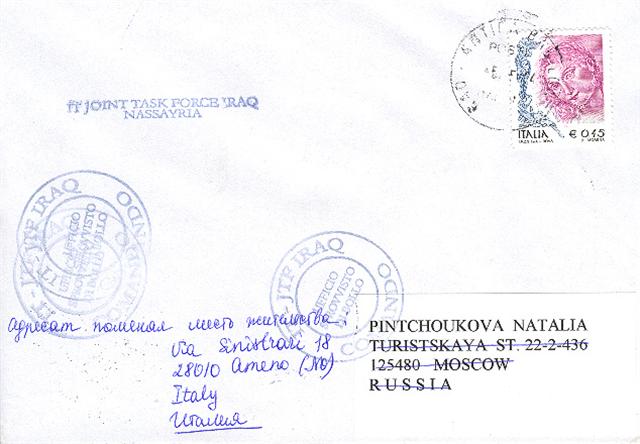 IT JOINT TASK FORCE IRAQ
NASSAYRIA
ITALIA
€ 0,45
IT - JTF IRAQ
COMANDO
UFFICIO
SPROVVISTO
DI BOLLO
IT - JTF IRAQ
COMANDO
UFFICIO
SPROVVISTO
DI BOLLO
Адресат поменял место жительства:
Via Sinistrari 18
28010 Ameno (NO)
Italy
Италия
PINTCHOUKOVA NATALIA
TURISTSKAYA ST. 22-2-436
125480 MOSCOW
RUSSIA